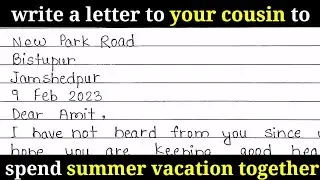 write a letter to your cousin to
New Park Road
Bistupur
Jamshedpur
9 Feb 2023
Dear Amit,
I have not heard from you since
hope you are keeping good
spend summer vacation together